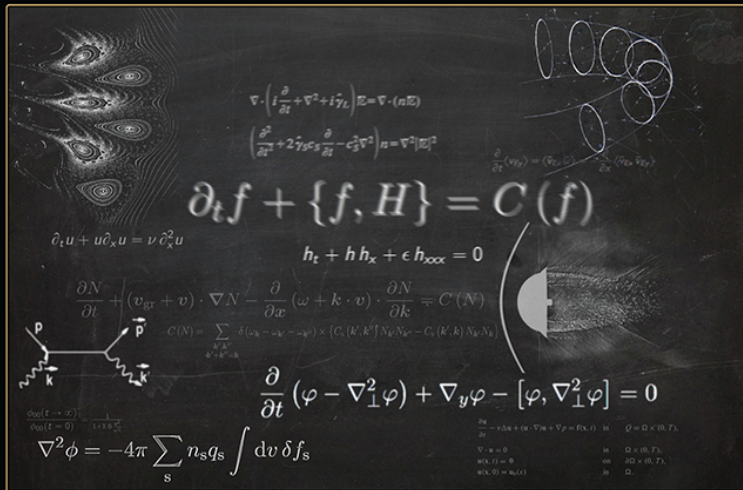 ∇ · (i ∂/∂t + ∇² + i γ̂_L) 𝔼 = ∇ · (n𝔼)
(∂²/∂t² + 2 γ̂_S c_S ∂/∂t − c_S² ∇²) n = ∇²|𝔼|²
∂_t f + {f, H} = C (f)
∂_t u + u∂_x u = ν ∂_x² u
h_t + h h_x + ϵ h_xxx = 0
∂N/∂t + (v_gr + v) · ∇N − ∂/∂x (ω + k · v) · ∂N/∂k = C (N)
p p'
k k'
∂/∂t (φ − ∇²_⊥ φ) + ∇_y φ − [φ, ∇²_⊥ φ] = 0
∇²ϕ = −4π ∑_s n_s q_s ∫ dv δf_s
∂u/∂t − νΔu + (u · ∇)u + ∇p = f(x, t) in Q = Ω × (0, T),
∇ · u = 0 in Ω × (0, T),
u(x, t) = 0 on ∂Ω × (0, T),
u(x, 0) = u₀(x) in Ω.